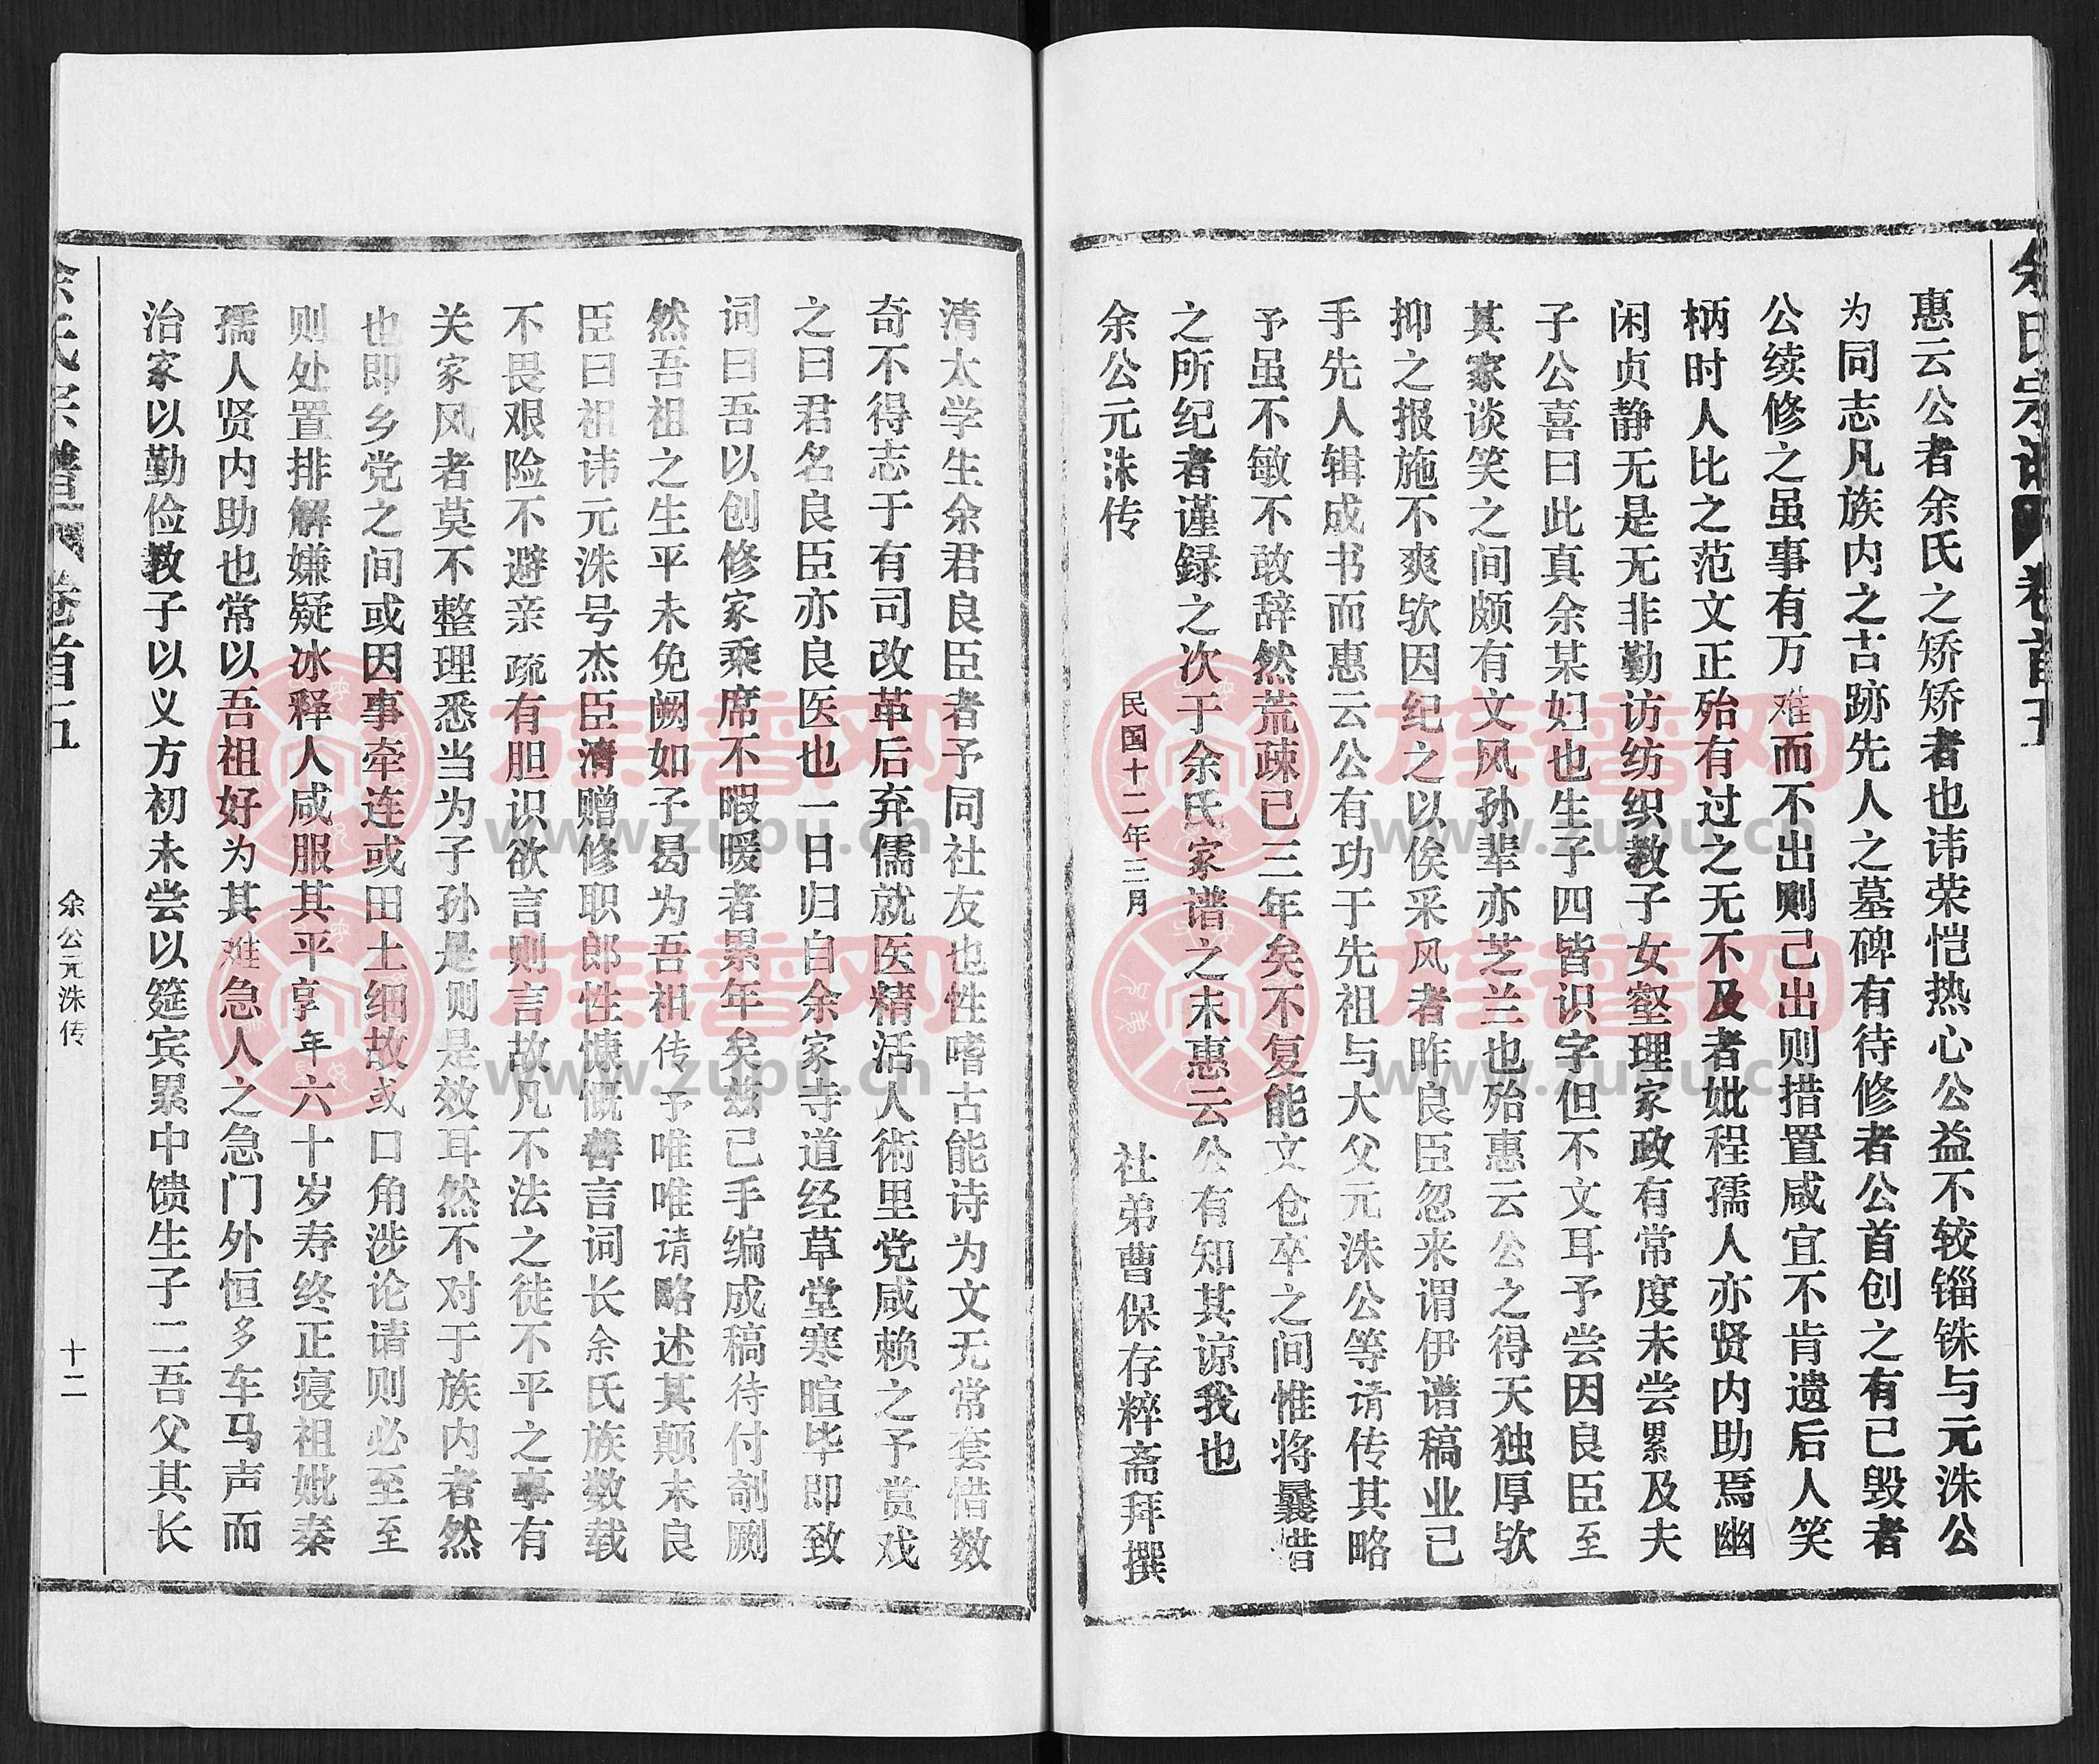 余氏宗谱
卷首五
惠云公者余氏之矫矫者也讳荣恺热心公益不较锱铢与元洙公
为同志凡族内之古跡先人之墓碑有待修者公首创之有已毁者
公续修之虽事有万难而不出则已出则措置咸宜不肯遗后人笑
柄时人比之范文正殆有过之无不及者妣程孺人亦贤内助焉幽
闲贞静无是无非勤访纺织教子女壑理家政有常度未尝累及夫
子公喜曰此真余某妇也生子四皆识字但不文耳予尝因良臣至
其家谈笑之间颇有文风孙辈亦芝兰也殆惠云公之得天独厚欤
抑之报施不爽欤因纪之以俟采风者昨良臣忽来谓伊谱稿业已
手先人辑成书而惠云公有功于先祖与大父元洙公等请传其略
予虽不敏不敢辞然荒疎已三年矣不复能文仓卒之间惟将曩惜
之所纪者谨録之次于余氏家谱之末惠云公有知其谅我也
民国十二年三月 社弟曹保存粹斋拜撰
余公元洙传
清太学生余君良臣者予同社友也性嗜古能诗为文无常套惜数
奇不得志于有司改革后弃儒就医精活人術里党咸赖之予赏戏
之曰君名良臣亦良医也一日归自余家寺道经草堂寒暄毕即致
词曰吾以创修家乘席不暇暖者累年矣兹已手编成稿待付剞劂
然吾祖之生平未免阙如子曷为吾祖传予唯唯请略述其颠末良
臣曰祖讳元洙号杰臣清赠修职郎性慷慨善言词长余氏族数载
不畏艰险不避亲疏有胆识欲言则言故凡不法之徒不平之事有
关家风者莫不整理悉当为子孙是则是效耳然不对于族内者然
也即乡党之间或因事牵连或田土细故或口角涉论请则必至至
则处置排解嫌疑冰释人咸服其平享年六十岁寿终正寝祖妣秦
孺人贤内助也常以吾祖好为其难急人之急门外恒多车马声而
治家以勤俭教子以义方初未尝以筵宾累中馈生子二吾父其长
余氏宗谱
卷首五
余公元洙传
十二
族谱网
www.zupu.cn
族谱网
www.zupu.cn
族谱网
www.zupu.cn
族谱网
www.zupu.cn